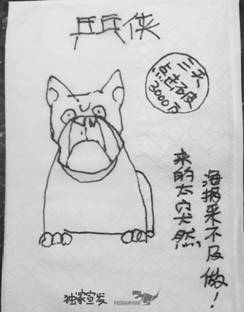 乒乓侠
三天
点击破
3000万
来的太突然
海报来不及做!
独家宣发